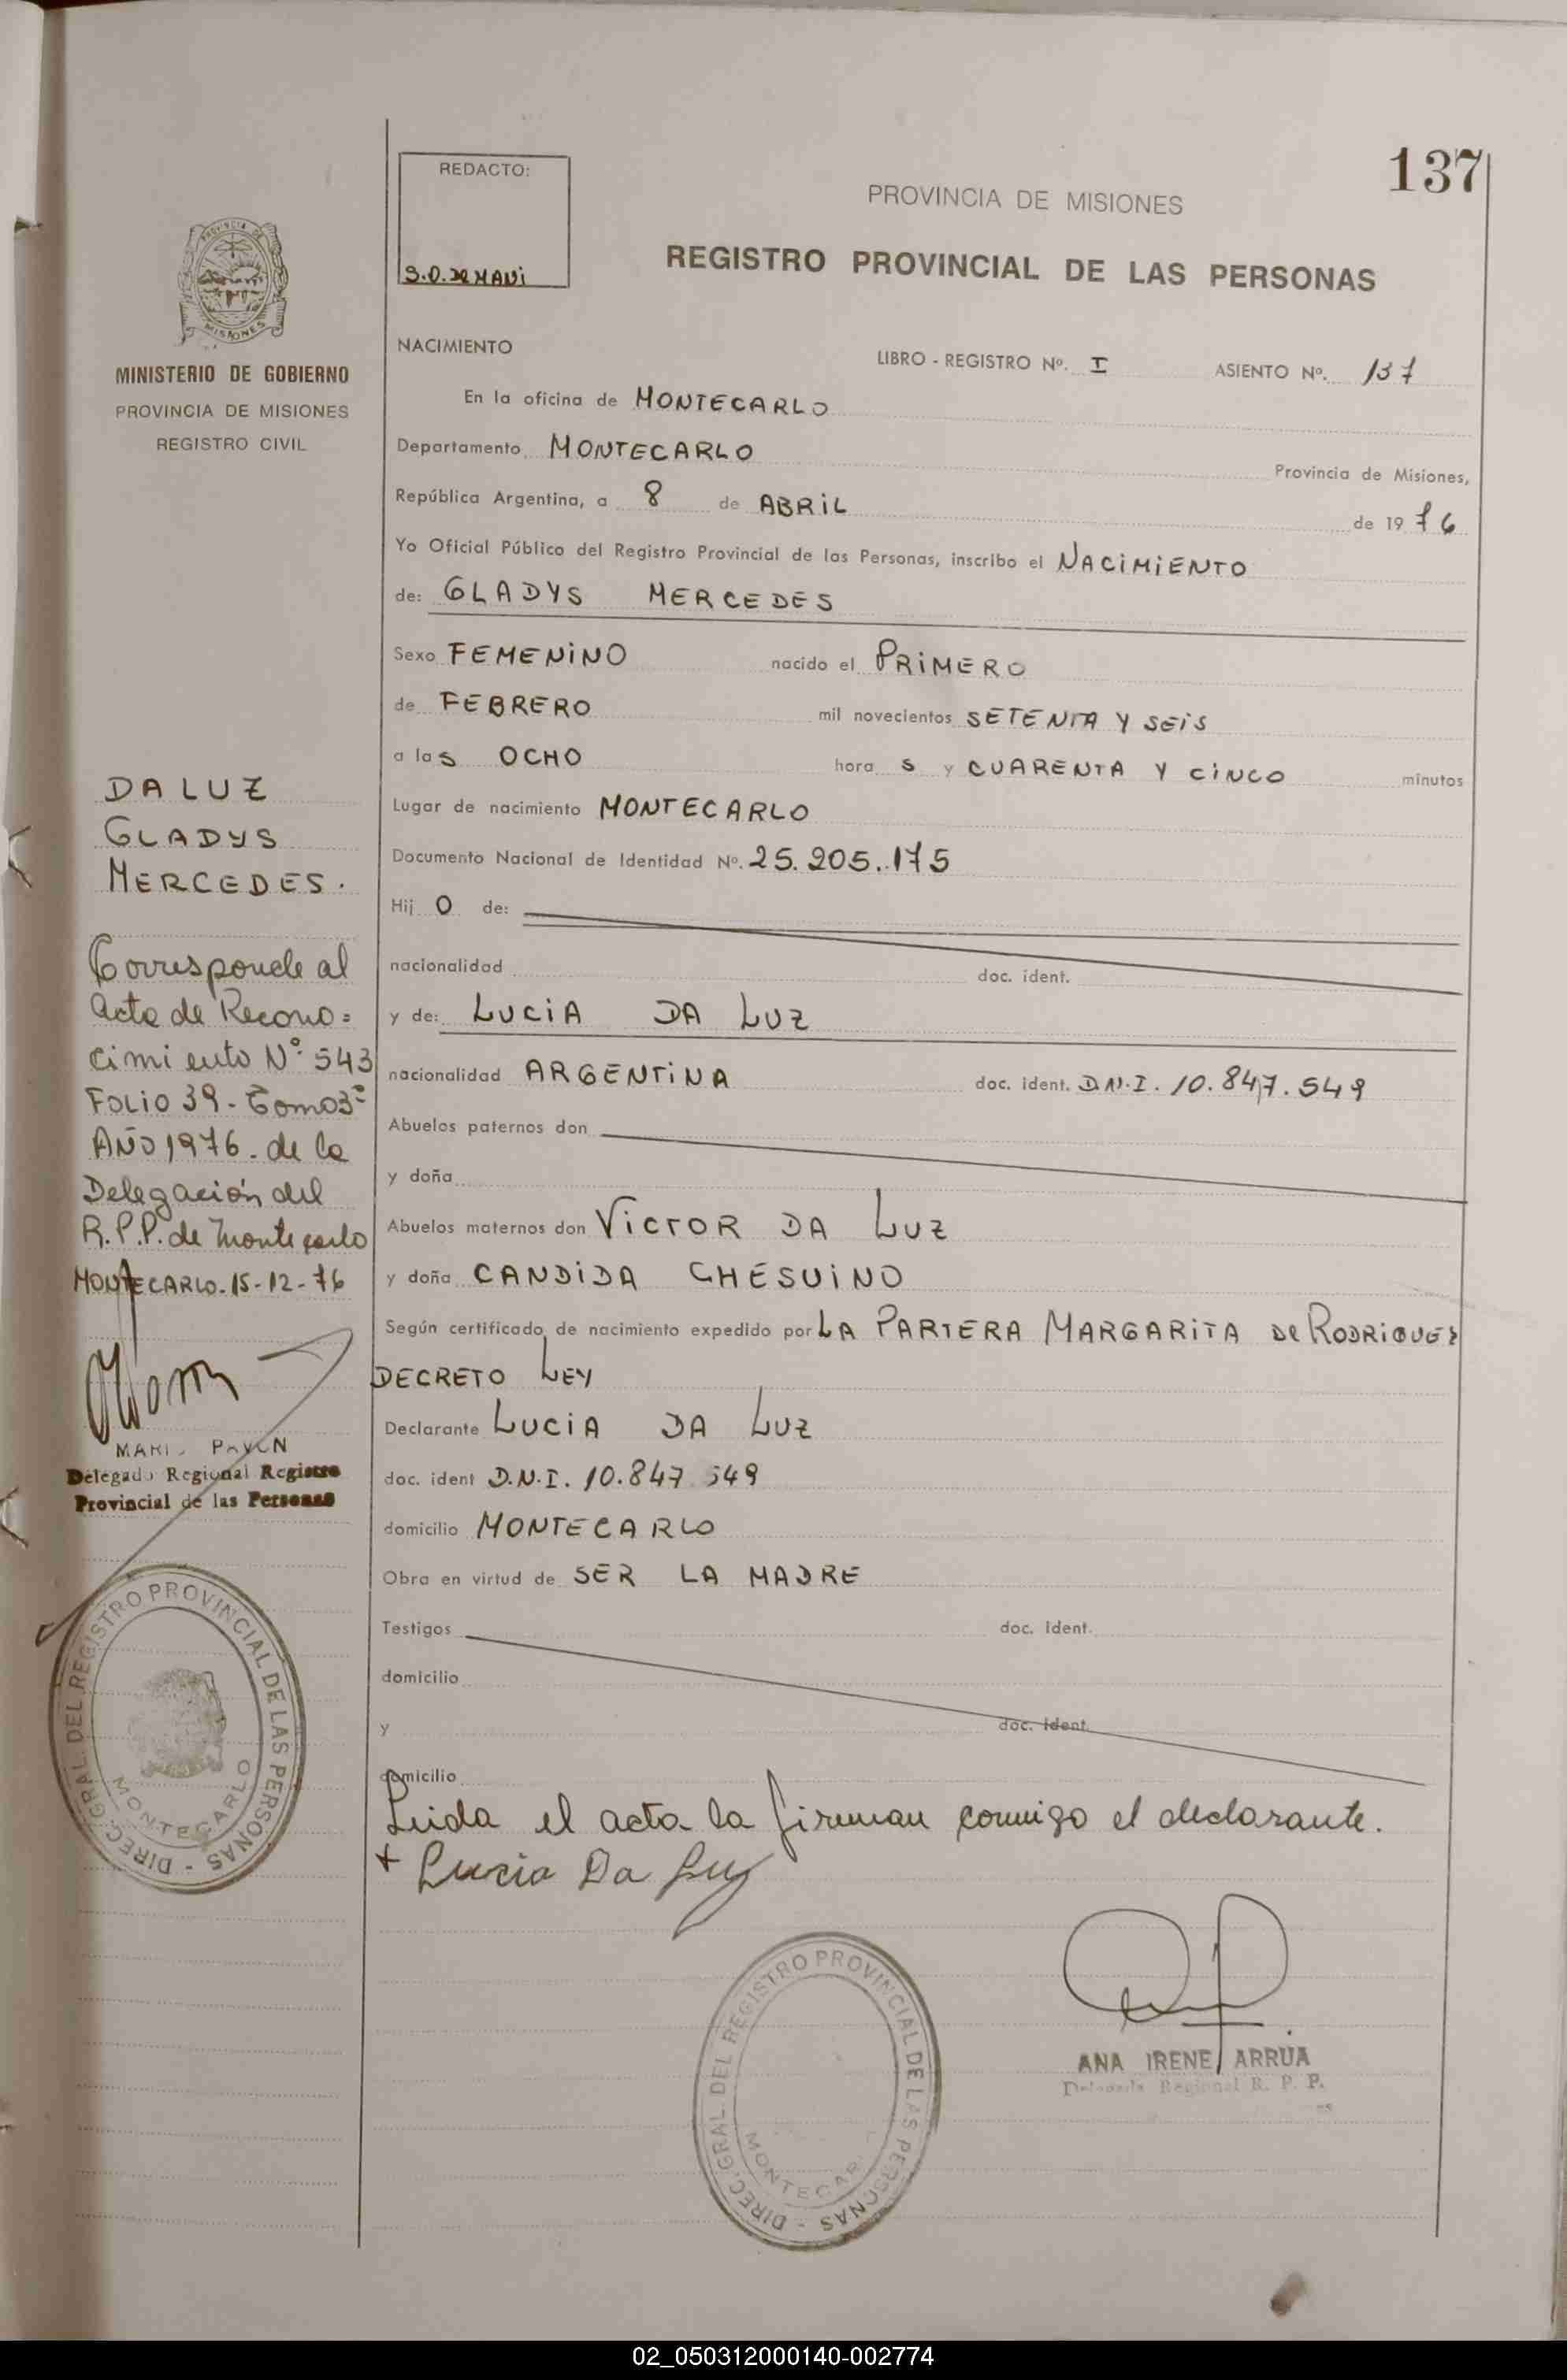 137
REDACTO:
PROVINCIA DE MISIONES
REGISTRO PROVINCIAL DE LAS PERSONAS
MINISTERIO DE GOBIERNO
PROVINCIA DE MISIONES
REGISTRO CIVIL
NACIMIENTO
LIBRO - REGISTRO Nº. I ASIENTO Nº. 137
En la oficina de MONTECARLO
Departamento MONTECARLO Provincia de Misiones,
República Argentina, a 8 de ABRIL de 1976
Yo Oficial Público del Registro Provincial de las Personas, inscribo el NACIMIENTO
de: GLADYS MERCEDES
Sexo FEMENINO nacido el PRIMERO
de FEBRERO mil novecientos SETENTA Y SEIS
a las OCHO hora s y CUARENTA Y CINCO minutos
Lugar de nacimiento MONTECARLO
Documento Nacional de Identidad Nº. 25.205.175
Hij O de:
nacionalidad doc. ident.
y de: LUCIA DA LUZ
nacionalidad ARGENTINA doc. ident. D.N.I. 10.847.549
Abuelos paternos don
y doña
Abuelos maternos don VICTOR DA LUZ
y doña CANDIDA CHESUINO
Según certificado de nacimiento expedido por LA PARTERA MARGARITA DE RODRIGUEZ
DECRETO LEY
Declarante LUCIA DA LUZ
doc. ident D.N.I. 10.847.549
domicilio MONTECARLO
Obra en virtud de SER LA MADRE
Testigos doc. ident.
domicilio
y doc. ident.
domicilio
Leida el acta la firman conmigo el declarante.
+ Lucia Da Luz
ANA IRENE ARRUA
Delegada Regional R. P. P.
DIREC. GRAL. DEL REGISTRO PROVINCIAL DE LAS PERSONAS
DA LUZ
GLADYS
MERCEDES.
Corresponde al
acta de Recono=
cimiento Nº 543
FOLIO 39 - Tomo 3º
AÑO 1976 - de la
Delegación del
R.P.P. de Montecarlo
MONTECARLO - 15-12-76
PAVON
Delegado Regional Registro
Provincial de las Personas
DIREC. GRAL. DEL REGISTRO PROVINCIAL DE LAS PERSONAS
MONTECARLO
02_050312000140-002774